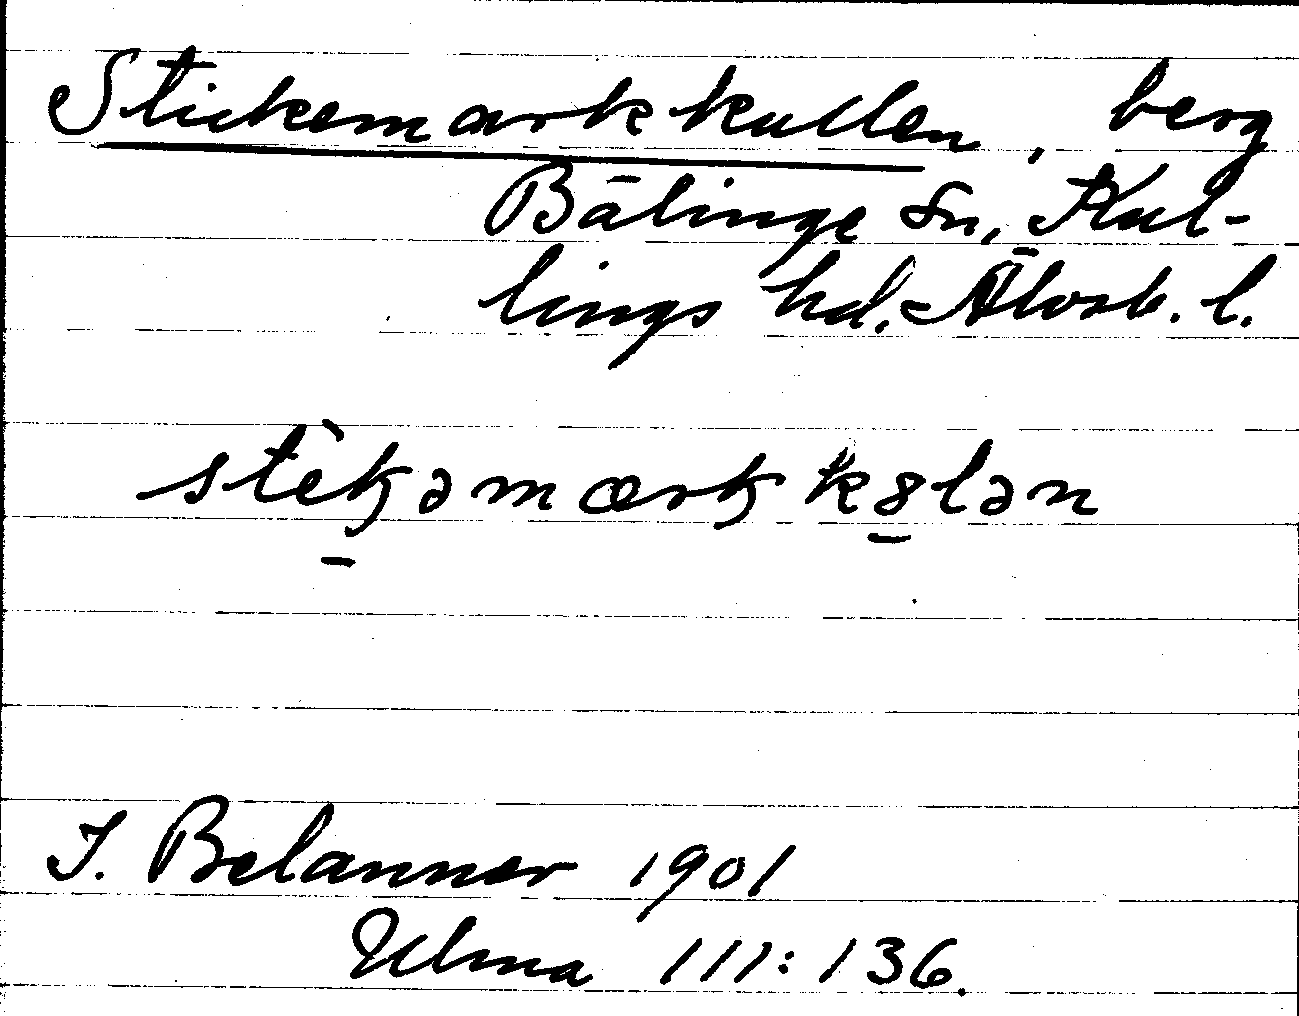 Stickemarkkullen, berg
Bälinge sn, Kul-
lings hd. Älvsb. l.
stèkəmarkkȣlən
J. Belanner 1901
Ulma 111:136.